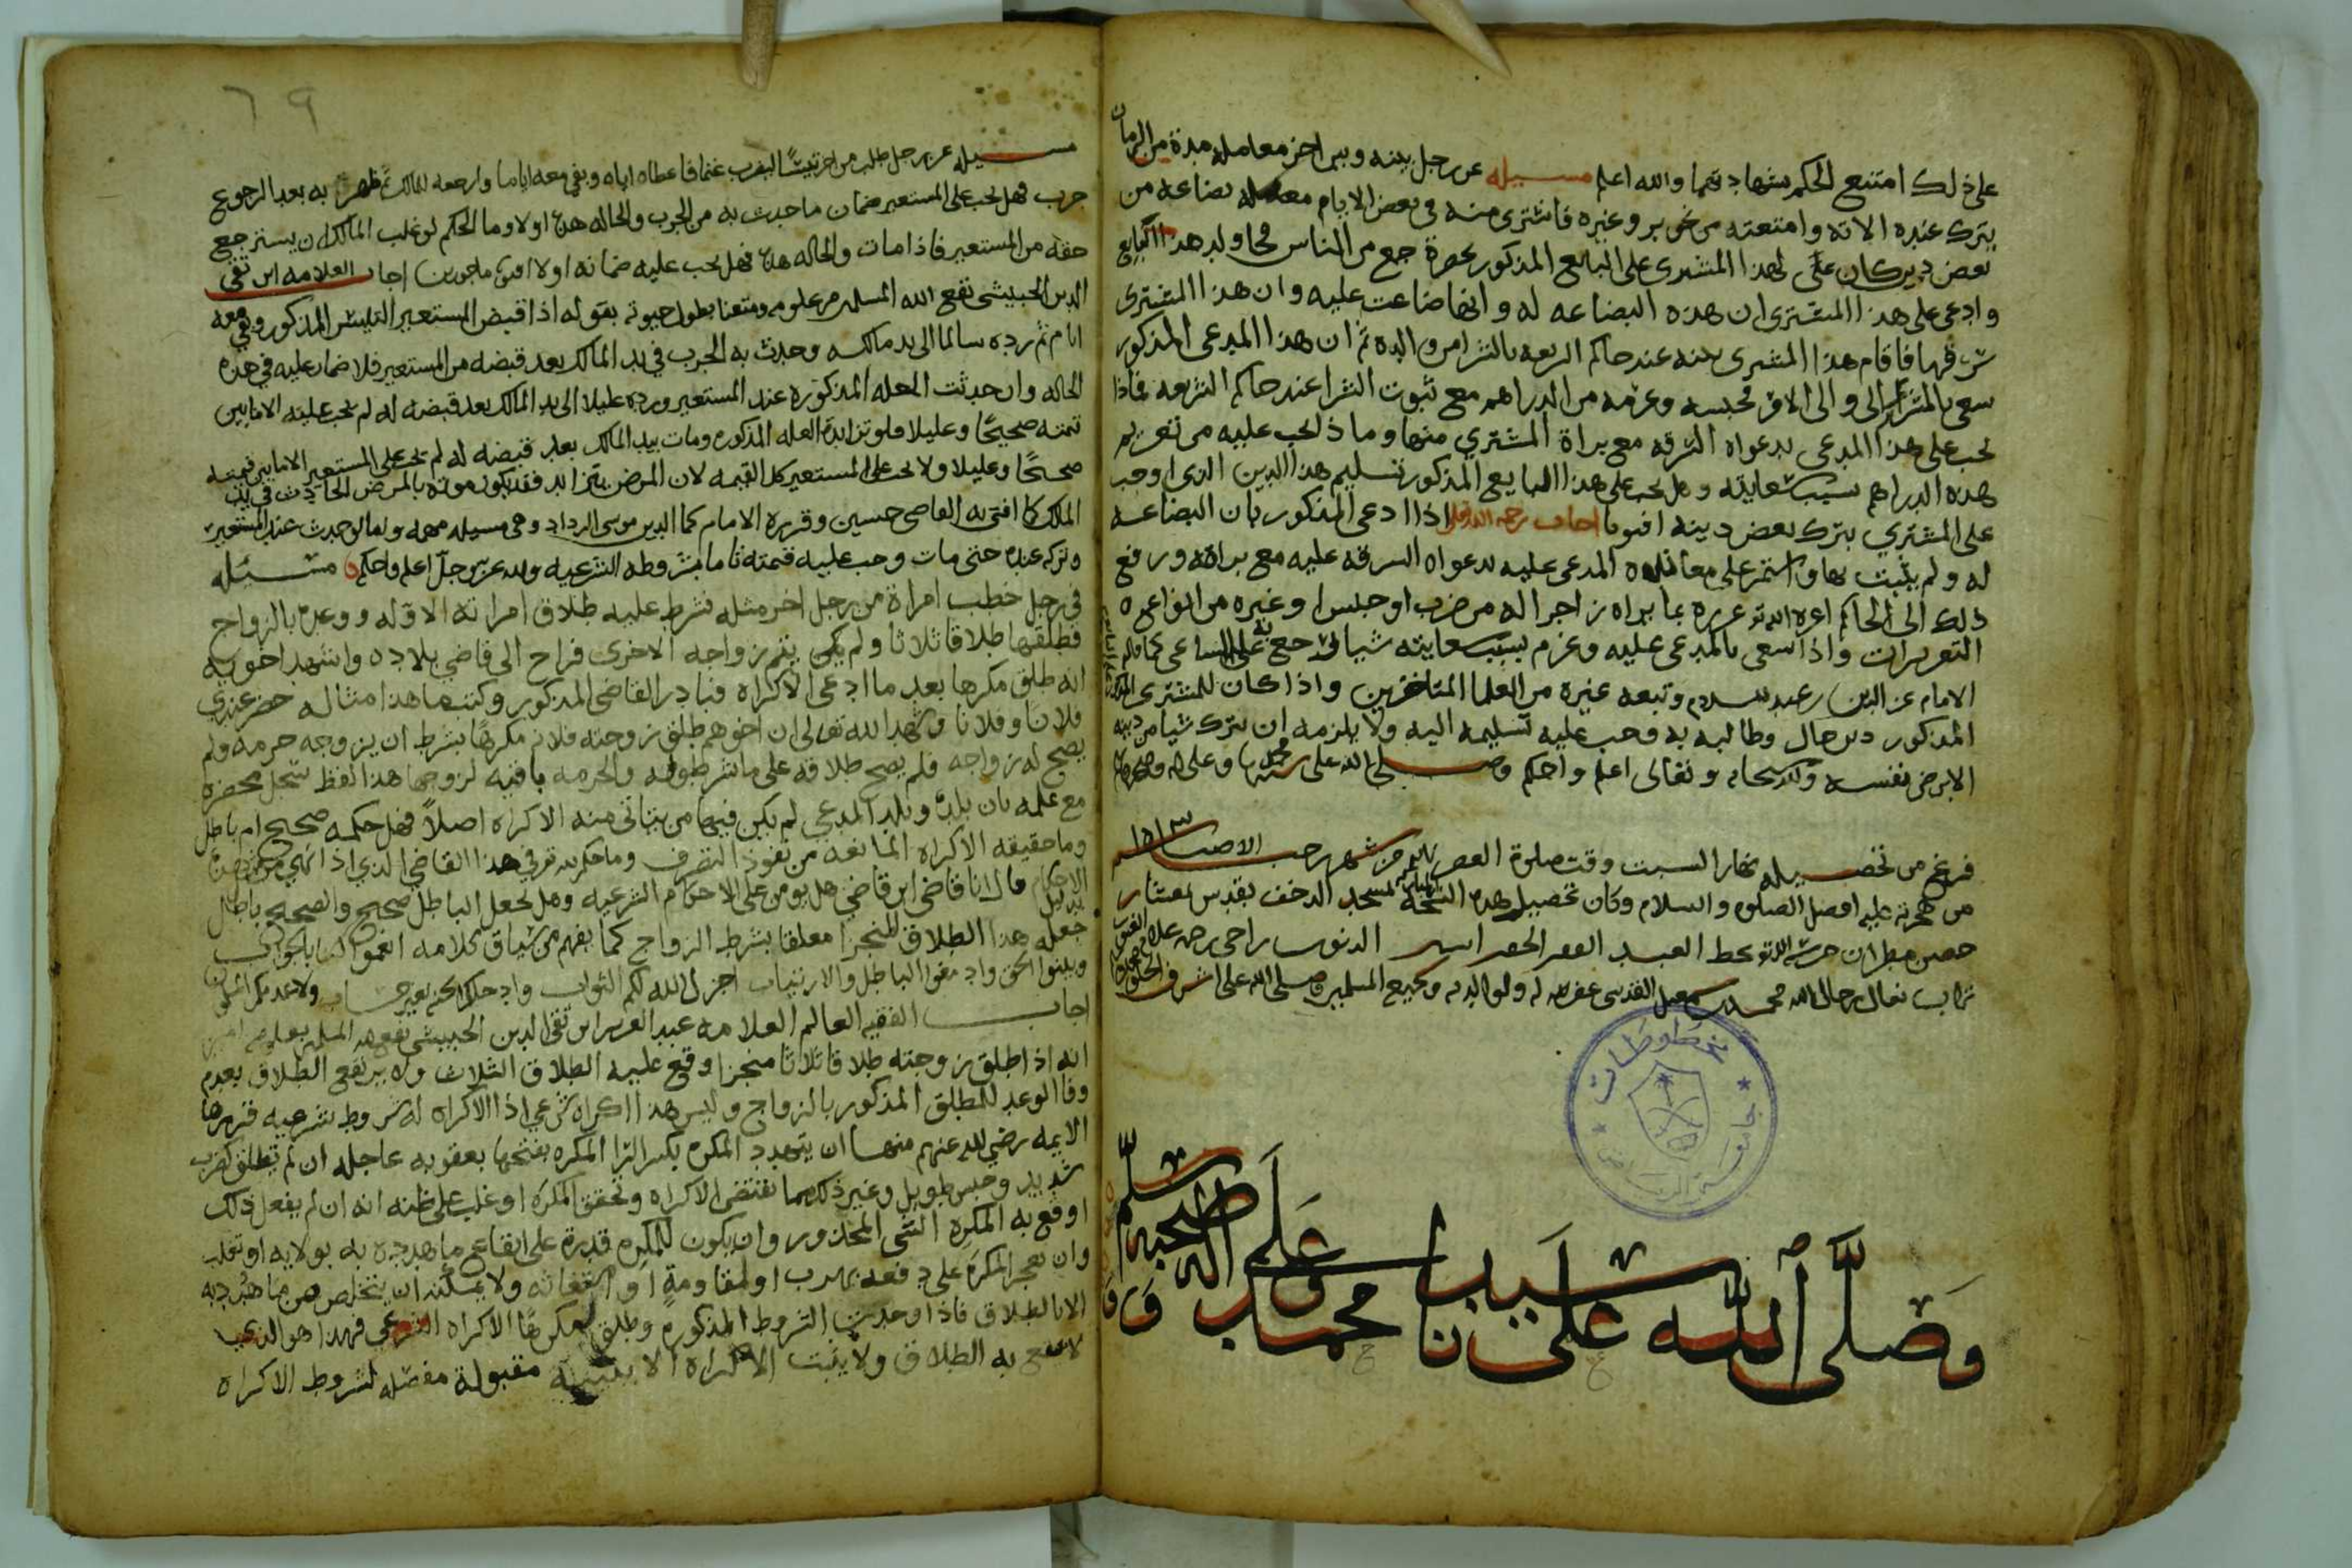 على ذلك امتنع الحكم بشهادتهما والله اعلم مسيله عن رجل بينه وبين اخر معامله مدة من الزمان
يترك عنده الاته وامتعته من خرير وغيره فاشترى منه في بعض الايام معمله بضاعه من
بعض دين كان على لهذا المشترى على البايع المذكور بحضرة جمع من الناس ولد هذا البايع
وادعى على هذا المشترى ان هذه البضاعه له وانها ضاعت عليه وان هذا المشترى
سرقها فاقام هذا المشترى بينه عند حاكم الشريعه بالشرا من والده ثم ان هذا المدعى المذكور
سعى بالمشترى الى والى الامر فحبسه وغرمه من الدراهم مع ثبوت الشرا عند حاكم الشريعه فماذا
يجب على هذا المدعى بدعواه السرقه مع براة المشتري منها وماذا يجب عليه من تغريم
هذه الدراهم بسبب سعايته وهل يجب على هذا البايع المذكور تسليم هذا الدين الذي اوجب
على المشتري بترك بعض دينه افتونا اجاب رحمه الله بقوله اذا ادعى المذكور بان البضاعه
له ولم يثبت بها واستمر على معاندة المدعى عليه بدعواه السرقه عليه مع براته ورفع
ذلك الى الحاكم اعزه الله تع عزره بما يراه زاجرا له من ضرب او حبس او غيره من انواع
التعزيرات واذا سعى بالمدعى عليه وغرم بسبب سعايته شيا رجع به على الساعى كما قاله
الامام عز الدين بن عبد السلام وتبعه غيره من العلما المتاخرين واذا كان للمشترى
المذكور دين حال وطالبه به وجب عليه تسليمه اليه ولا يلزمه ان يترك شيا من دينه
الا برضى نفسه والله سبحانه وتعالى اعلم واحكم وصلى الله على سيدنا محمد وعلى اله وصحبه وسلم
فرغ من تحصيله نهار السبت وقت صلوة العصر من شهر رجب الاصب
من هجرته عليه افضل الصلوه والسلام وكان تحصيل هذه النسخه بمسجد
حصن مطران حرسه الله تع بخط العبد الفقير الحقير اسير الذنوب راجي رحمة علام الغيوب
تراب نعال رجال الله محمد بن اسمعيل القدسى غفر الله له ولوالديه وجميع المسلمين وصلى الله على اشرف
وصلى الله على سيدنا محمد وعلى اله وصحبه وسلم
مخطوطات
جامعة الرياض
٦٩
مسيله عن رجل طلب من اخر تيسًا ليضرب غنما فاعطاه اياه وبقي معه اياما وارجعه للمالك ثم ظهر به بعد الرجوع
جرب فهل يجب على المستعير ضمان ما حدث به من الجرب والحاله هذه او لا وما الحكم لو غلب المالك ان يسترجع
حقه من المستعير فاذا مات والحاله هذه فهل يجب عليه ضمانه او لا افتونا ماجورين اجاب العلامه ابن تقي
الدين الحبيشى نفع الله المسلمين بعلومه ومتعنا بطول حيوته بقوله اذا قبض المستعير التيس المذكور وبقى معه
اياما ثم رده سالما الى يد مالكه وحدث به الجرب في يد المالك بعد قبضه من المستعير فلا ضمان عليه في هذه
الحاله وان حدثت العله المذكوره عند المستعير ورده عليلا الى يد المالك بعد قبضه له لم يجب عليه الا ما بين
قيمته صحيحًا وعليلا فلو تزايدة العله المذكوره ومات بيد المالك بعد قبضه له لم يجب على المستعير الا ما بين قيمته
صحيحًا وعليلا ولا يجب على المستعير كل القيمه لان المرض يتزايد فقد يكون موته بالمرض الحادث في يد
المالك كما افتى به القاضي حسين وقرره الامام كمال الدين موسى الرداد وهي مسيله مهمه واما لو حدث عند المستعير
وتركه عنده حتى مات وجب عليه قيمته تاما بشروطه الشرعيه والله عز وجل اعلم واحكم مسئله
في رجل خطب امراة من رجل اخر مثله فشرط عليه طلاق امراته الاوله ووعده بالزواج
فطلقها طلاقا ثلاثا ولم يكن يتم زواجه الاخرى فراح الى قاضي بلاده واشهد اخويه
انه طلق مكرها بعد ما ادعى الاكراه فبادر القاضي المذكور وكتب ما هذا مثاله حضر عندي
فلانًا وفلانا وشهدا لله تعالى ان اخوهم طلق زوجته فلانه مكرهًا بشرط ان يزوجه حرمه ولم
يصح له زواجه فلم يصح طلاقه على ما شرطوله والحرمه باقيه لزوجها هذا لفظ سجل محضره
مع علمه بان بلده وبلد المدعي لم يكن فيهما من يتاتى منه الاكراه اصلاً فهل حكمه صحيح ام باطل
وما حقيقه الاكراه المانعه من نفوذ التصرف وما حكم هذا القاضي الذي اذا نهي
الاحكام قال انا قاضي ابن قاضي هل يومن على الاحكام الشرعيه وهل يجعل الباطل صحيح والصحيح باطل
جعله هذا الطلاق المنجز معلقا بشرط الزواج كما يفهم من سياق كلامه
وبينوا الحق وادمغوا الباطل والارتياب اجزل الله لكم الثواب وادخلكم الجنه بغير حساب
اجاب الفقيه العالم العلامه عبد العزيز ابن تقي الدين الحبيشي نفع الله المسلمين بعلومه امين
انه اذا طلق زوجته طلاقا ثلاثا منجزا وقع عليه الطلاق الثلاث ولا يرتفع الطلاق بعدم
وفا الوعد للمطلق المذكور بالزواج وليس هذا اكراه شرعي اذ الاكراه له شروط شرعيه قررها
الايمه رضي الله عنهم منها ان يتهدد المكره بكسر الرا المكره بفتحها بعقوبه عاجله ان لم يطلق كضرب
شديد وحبس طويل وغير ذلك مما يقتضى الاكراه وتحقق المكره او غلب على ظنه انه ان لم يفعل ذلك
اوقع به المكره الشى المحذور وان يكون للمكره قدرة على ايقاع ما هدده به بولايه او تغلب
وان يعجز المكره على دفعه بهرب او مقاومةٍ او استغاثه ولا يمكنه ان يتخلص من ما هدد به
الا بالطلاق فاذا وجدت الشروط المذكوره وطلق مكرهًا الاكراه الشرعي فهذا هو الذي
لا يقع به الطلاق ولا يثبت الاكراه الا ببينه مقبولة مفصله لشروط الاكراه